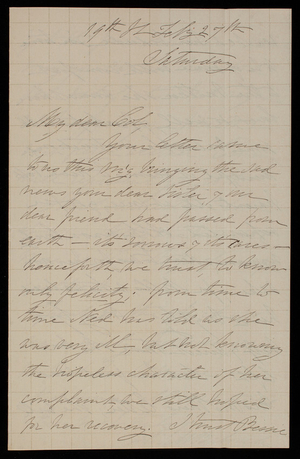 19th St Feb 27th
Saturday
My dear Col,
Your letter came
to us this mg. bringing the sad
news your dear Sister, & our
dear friend had passed from
earth — its sorrows & its cares —
henceforth, we trust, to know
only felicity. From time to
time Ned has told us she
was very ill, but not knowing
the hopeless character of her
complaint, we still hoped
for her recovery. I trust